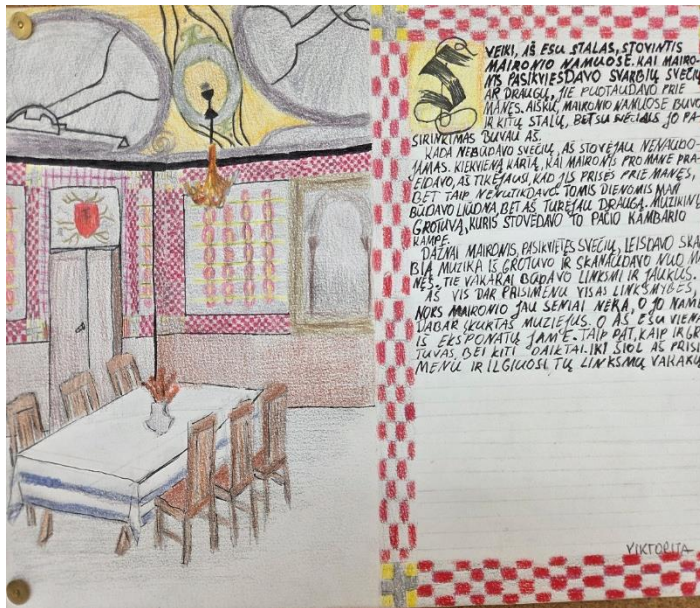 SVEIKI, AŠ ESU STALAS, STOVINTIS
MAIRONIO NAMUOSE. KAI MAIRO-
NIS PASIKVIESDAVO SVARBIŲ SVEČIŲ
AR DRAUGŲ, JIE PUOTAUDAVO PRIE
MANĘS. AIŠKU, MAIRONIO NAMUOSE BUVO
IR KITŲ STALŲ, BET SU SVEČIAIS JO PA-
SIRINKIMAS BUVAU AŠ.
KADA NEBŪDAVO SVEČIŲ, AŠ STOVĖJAU NENAUDO-
JAMAS. KIEKVIENĄ KARTĄ, KAI MAIRONIS PRO MANE PRA-
EIDAVO, AŠ TIKĖJAUSI, KAD JIS PRISĖS PRIE MANĘS,
BET TAIP NENUTIKDAVO. TOMIS DIENOMIS MAN
BŪDAVO LIŪDNA, BET AŠ TURĖJAU DRAUGĄ. MUZIKINĮ
GROTUVĄ, KURIS STOVĖDAVO TO PAČIO KAMBARIO
KAMPE.
DAŽNAI MAIRONIS, PASIKVIETĘS SVEČIŲ, LEISDAVO SKA
BIĄ MUZIKĄ IŠ GROTUVO IR SKANAUDAVO NUO MA
NĘS. TIE VAKARAI BŪDAVO LINKSMI IR JAUKŪS.
AŠ VIS DAR PRISIMENU VISAS LINKSMYBES,
NORS MAIRONIO JAU SENIAI NĖRA, O JO NAMU
DABAR ĮKURTAS MUZIEJUS. O AŠ ESU VIENA
IŠ EKSPONATŲ JAME. TAIP PAT, KAIP IR GRO
TUVAS, BEI KITI DAIKTAI. IKI ŠIOL AŠ PRISI
MENU IR ILGIUOSI TŲ LINKSMŲ VAKARŲ
VIKTORIJA